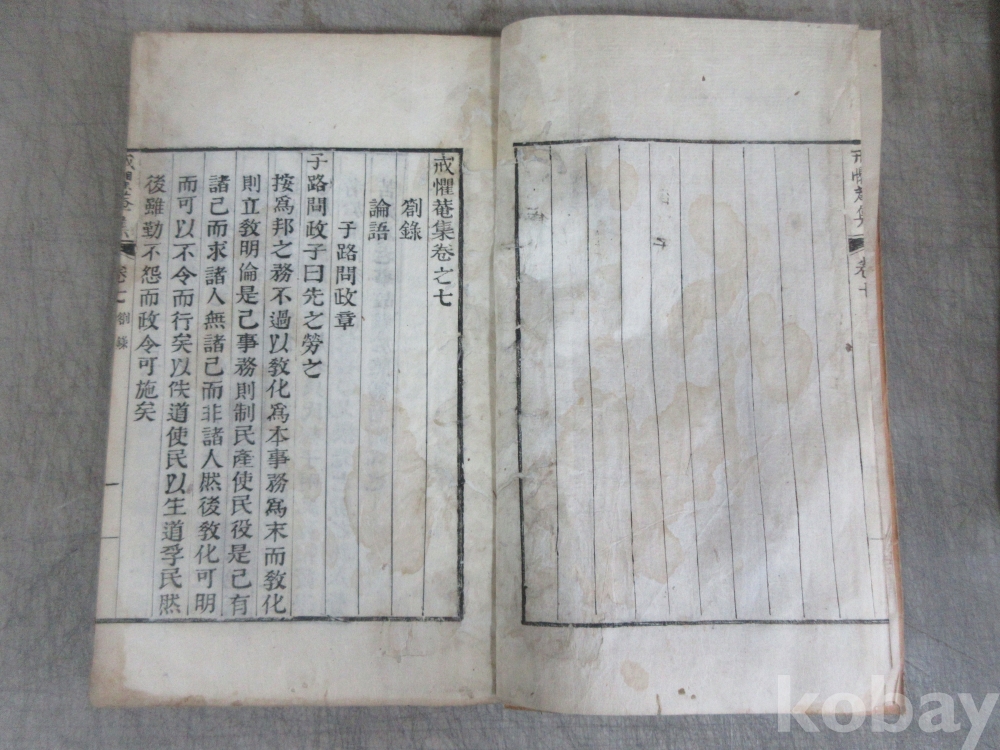 戒懼菴集
卷七
戒懼菴集卷之七
劄錄
論語
子路問政章
子路問政子曰先之勞之
按爲邦之務不過以敎化爲本事務爲末而敎化
則立敎明倫是已事務則制民產使民役是已有
諸己而求諸人無諸己而非諸人然後敎化可明
而可以不令而行矣以佚道使民以生道孚民然
後雖勤不怨而政令可施矣
卷七
劄錄
kobay